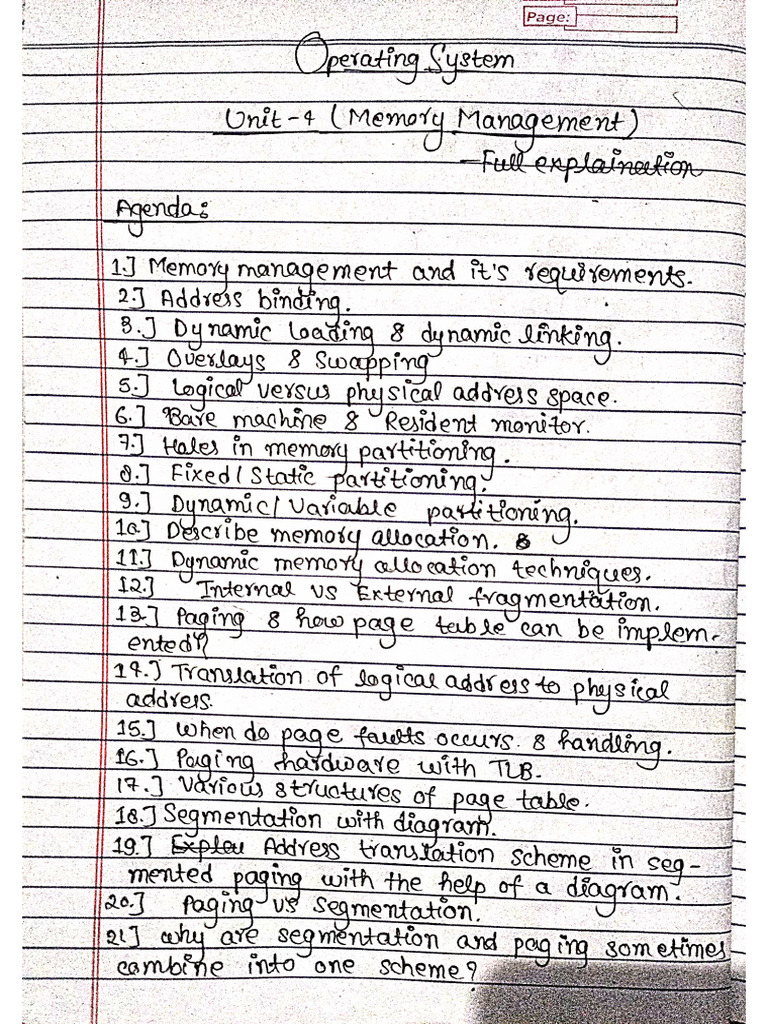 Page:
Operating System
Unit-4 (Memory Management)
-Full explaineation
Agenda:
1.] Memory management and it's requirements.
2.] Address binding.
3.] Dynamic loading & dynamic linking.
4.] Overlays & Swapping
5.] Logical versus physical address space.
6.] Bare machine & Resident monitor.
7.] Holes in memory partitioning.
8.] Fixed/Static partitioning.
9.] Dynamic/Variable partitioning.
10.] Describe memory allocation. &
11.] Dynamic memory allocation techniques.
12.] Internal vs External fragmentation.
13.] Paging & how page table can be implem-
ented?
14.] Translation of logical address to physical
address.
15.] When do page faults occurs. & handling.
16.] Paging hardware with TLB.
17.] Various structures of page table.
18.] Segmentation with diagram.
19.] Address translation scheme in seg-
mented paging with the help of a diagram.
20.] Paging vs Segmentation.
21] Why are segmentation and paging sometimes
combine into one scheme?